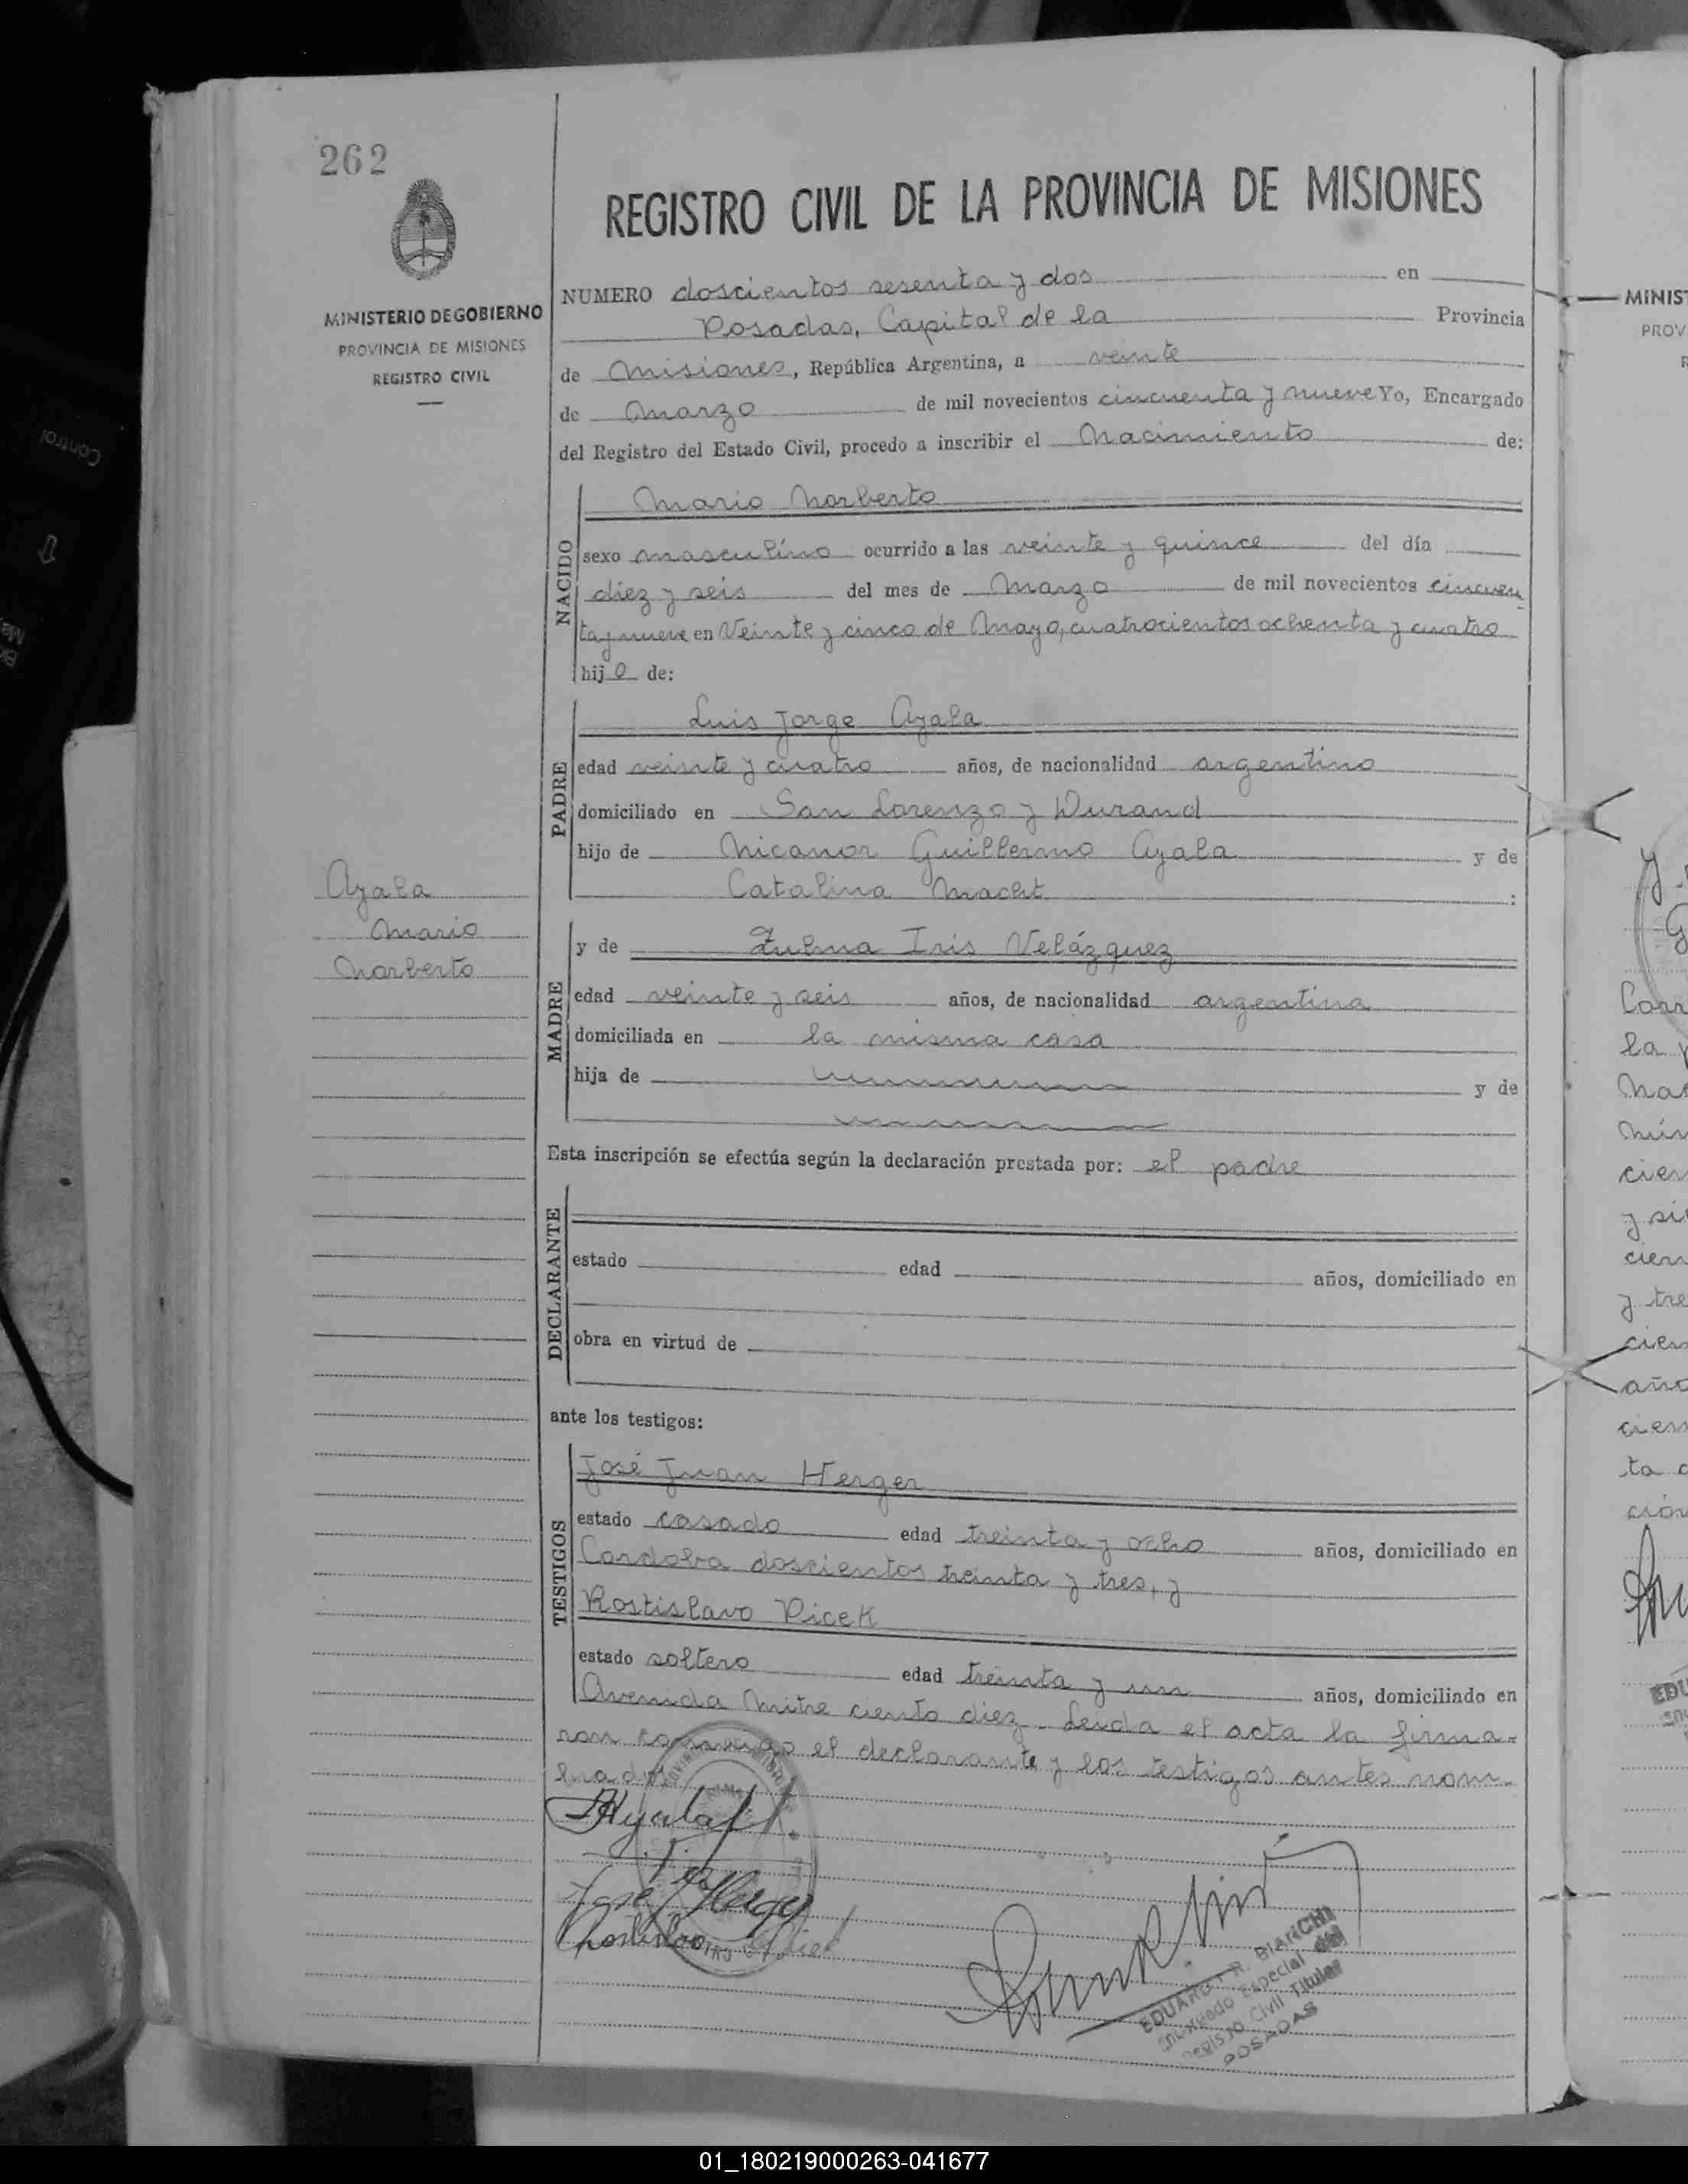 262
MINISTERIO DE GOBIERNO
PROVINCIA DE MISIONES
REGISTRO CIVIL
REGISTRO CIVIL DE LA PROVINCIA DE MISIONES
NUMERO doscientos sesenta y dos en
Posadas, Capital de la Provincia
de Misiones, República Argentina, a veinte
de Marzo de mil novecientos cincuenta y nueve Yo, Encargado
del Registro del Estado Civil, procedo a inscribir el Nacimiento de:
NACIDO
Mario Norberto
sexo masculino ocurrido a las veinte y quince del día
diez y seis del mes de Marzo de mil novecientos cincuen
ta y nueve en Veinte y cinco de Mayo, cuatrocientos ochenta y cuatro
hijo de:
PADRE
Luis Jorge Ayala
edad veinte y cuatro años, de nacionalidad argentino
domiciliado en San Lorenzo y Durand
hijo de Nicanor Guillermo Ayala y de
Catalina Macht :
Ayala
Mario
Norberto
MADRE
y de Zulma Iris Velázquez
edad veinte y seis años, de nacionalidad argentina
domiciliada en la misma casa
hija de y de
Esta inscripción se efectúa según la declaración prestada por: el padre
DECLARANTE
estado edad años, domiciliado en
obra en virtud de
ante los testigos:
TESTIGOS
José Juan Herger
estado casado edad treinta y ocho años, domiciliado en
Cordoba doscientos treinta y tres, y
Rostislavo Picek
estado soltero edad treinta y un años, domiciliado en
Avenida Mitre ciento diez. Leida el acta la firma-
ron conmigo el declarante y los testigos antes nom-
brados
EDUARDO R. BIANCHI
Encargado Especial del
Registro Civil Titular
POSADAS
MINIS
PROV
Control
01_180219000263-041677